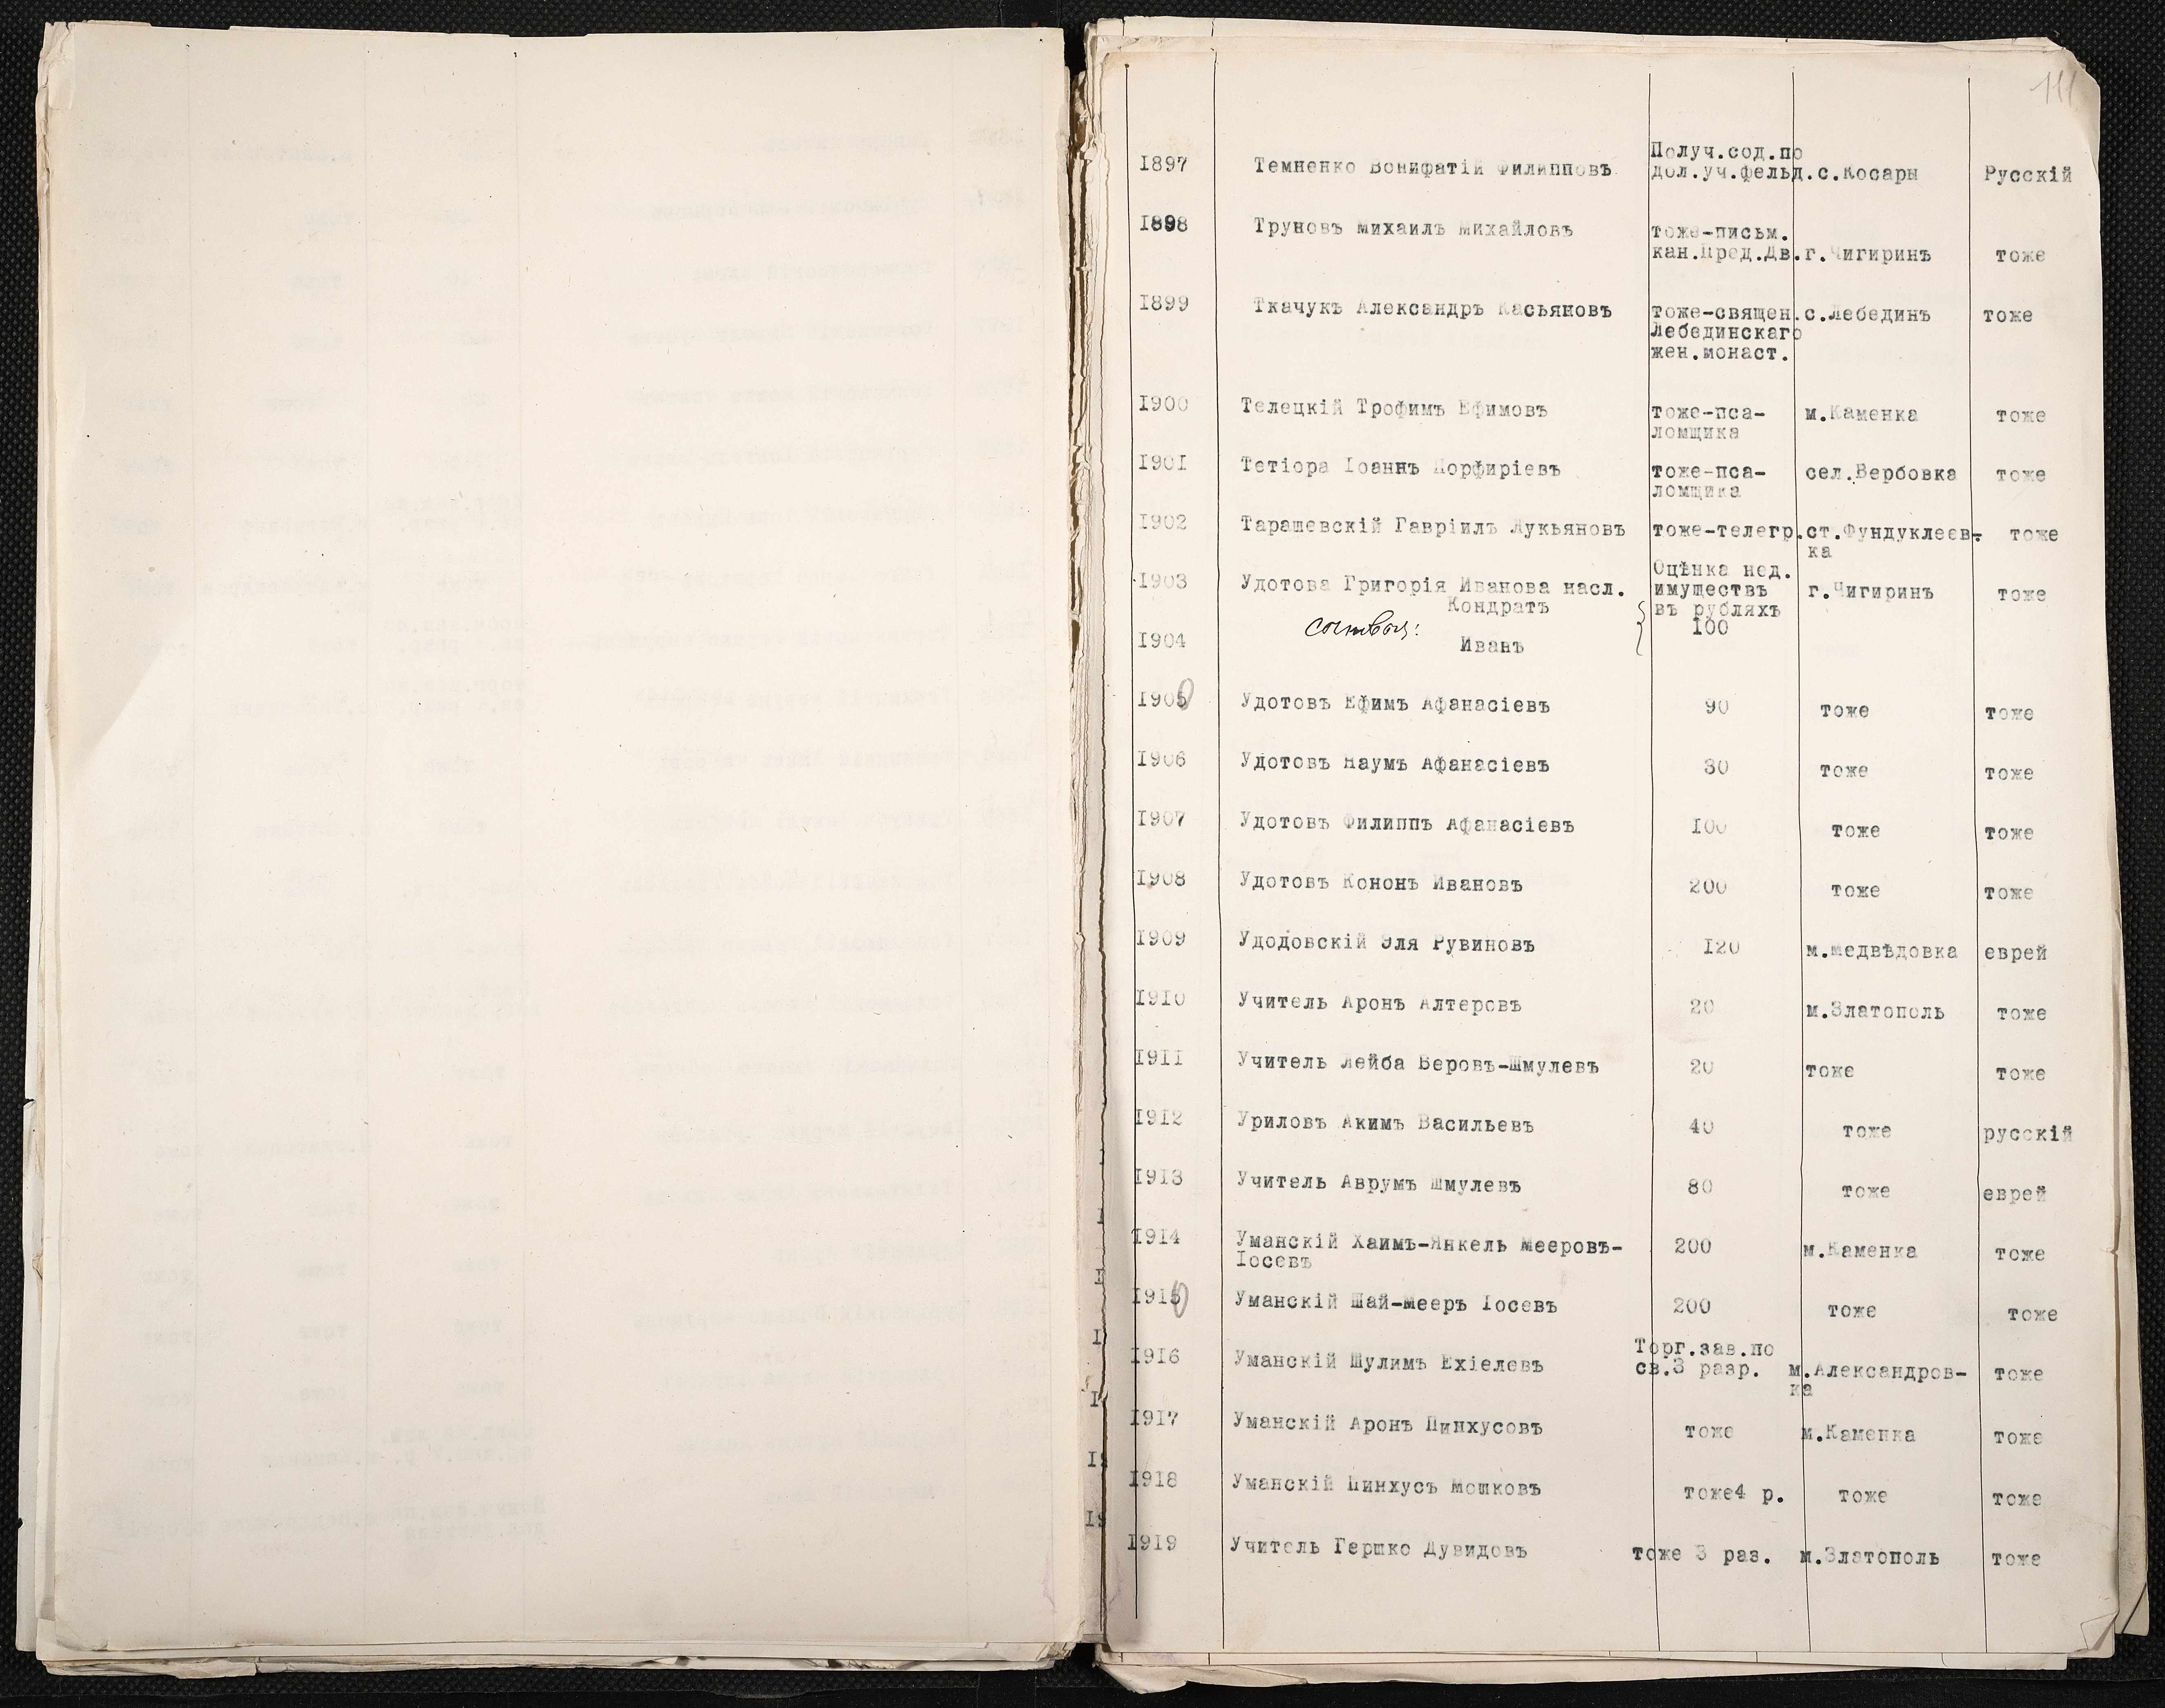 111
Получ.сод.по
1897 Темненко Вонифатій Филипповъ дол.уч.фельд.с.Косары Русскій
1898 Труновъ Михаилъ Михайловъ тоже-письм.
кан.Пред.Дв.г.Чигиринъ тоже
1899 Ткачукъ Александръ Касьяновъ тоже-священ.с.Лебединъ тоже
Лебединскаго
жен.монаст.
1900 Телецкій Трофимъ Ефимовъ тоже-пса- м.Каменка тоже
ломщика
1901 Тетіора Іоаннъ Порфиріевъ тоже-пса- сел.Вербовка тоже
ломщика
1902 Тарашевскій Гавріилъ Лукьяновъ тоже-телегр.ст.Фундуклеев- тоже
ка
Оцѣнка нед.
1903 Удотова Григорія Иванова насл. имуществъ г.Чигиринъ тоже
Кондратъ въ рубляхъ
100
1904 Иванъ
1905 Удотовъ Ефимъ Афанасіевъ 90 тоже тоже
1906 Удотовъ Наумъ Афанасіевъ 30 тоже тоже
1907 Удотовъ Филиппъ Афанасіевъ 100 тоже тоже
1908 Удотовъ Кононъ Ивановъ 200 тоже тоже
1909 Удодовскій Эля Рувиновъ 120 м.Медвѣдовка еврей
1910 Учитель Аронъ Алтеровъ 20 м.Златополь тоже
1911 Учитель Лейба Беровъ-Шмулевъ 20 тоже тоже
1912 Уриловъ Акимъ Васильевъ 40 тоже русскій
1913 Учитель Аврумъ Шмулевъ 80 тоже еврей
1914 Уманскій Хаимъ-Янкель Мееровъ- 200 м.Каменка тоже
Іосевъ
1915 Уманскій Шай-Мееръ Іосевъ 200 тоже тоже
Торг.зав.по
1916 Уманскій Шулимъ Ехіелевъ св.3 разр. м.Александров- тоже
ка
1917 Уманскій Аронъ Пинхусовъ тоже м.Каменка тоже
1918 Уманскій Пинхусъ Мошковъ тоже4 р. тоже тоже
1919 Учитель Гершко Дувидовъ тоже 3 раз. м.Златополь тоже